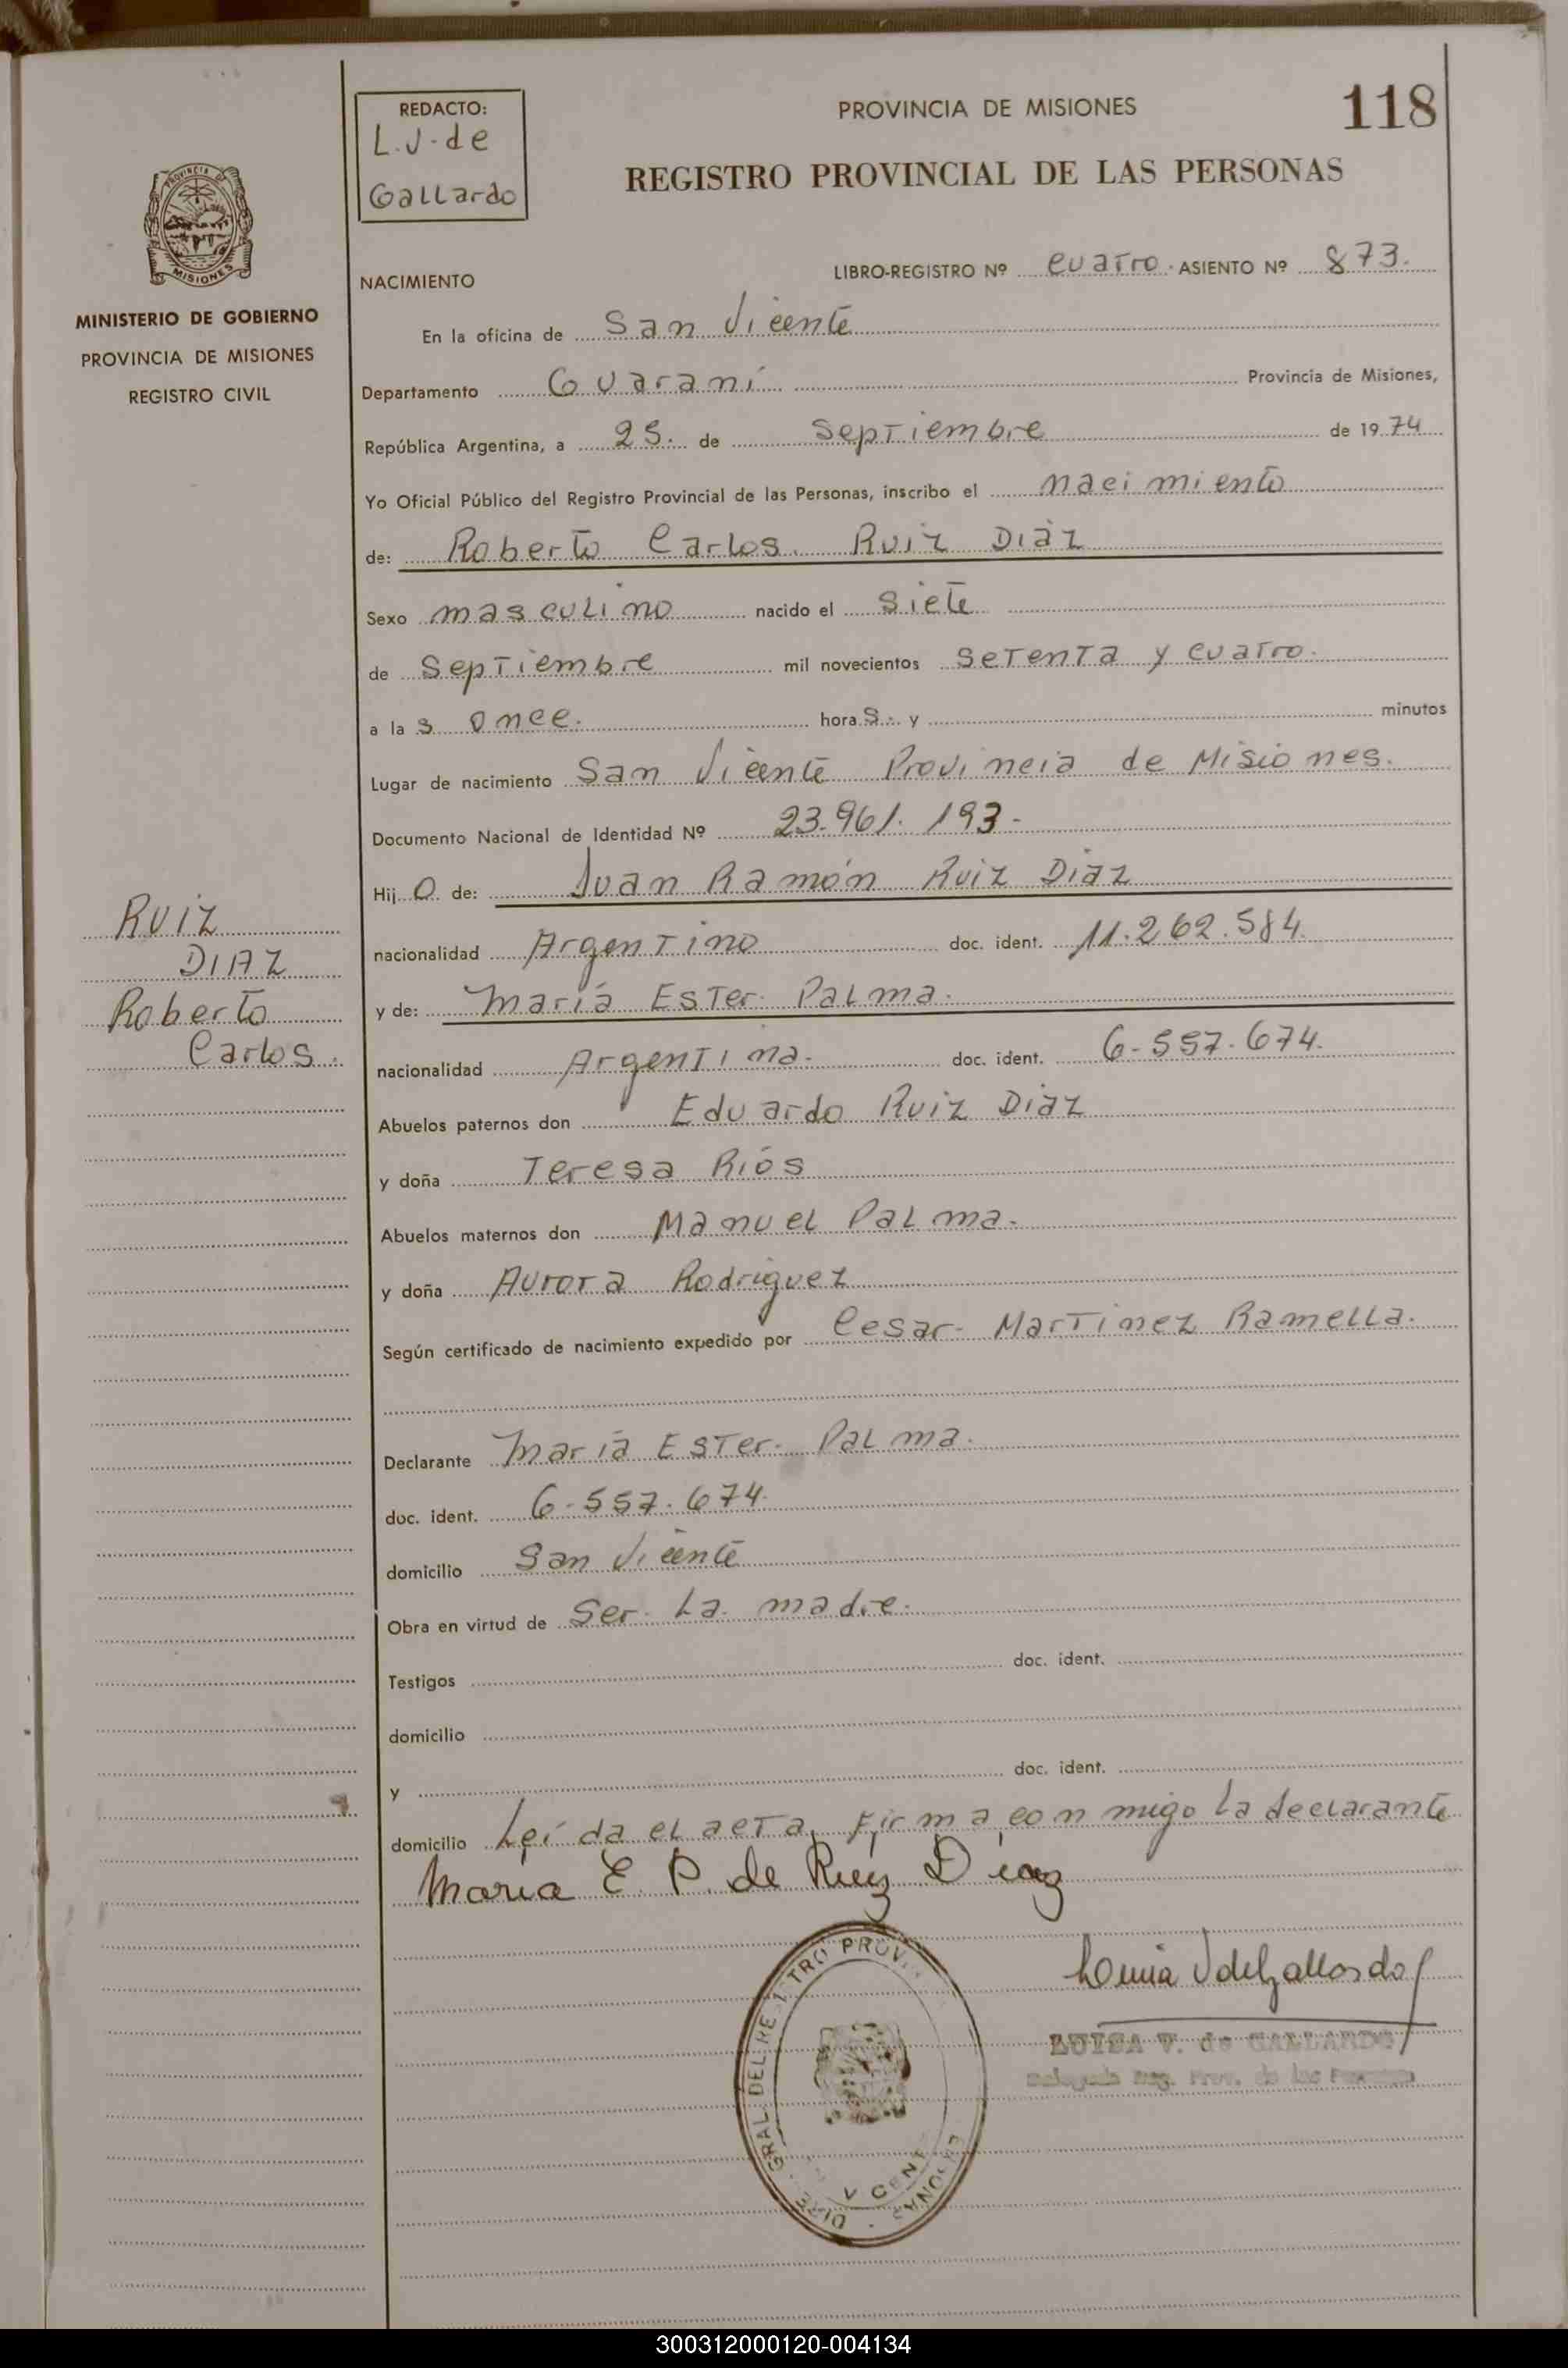 118
REDACTO:
L.J. de
Gallardo
PROVINCIA DE MISIONES
REGISTRO PROVINCIAL DE LAS PERSONAS
MISIONES
MINISTERIO DE GOBIERNO
PROVINCIA DE MISIONES
REGISTRO CIVIL
NACIMIENTO
LIBRO-REGISTRO Nº cuatro. ASIENTO Nº 873.
En la oficina de San Vicente
Departamento Guaraní Provincia de Misiones,
República Argentina, a 25. de Septiembre de 1974
Yo Oficial Público del Registro Provincial de las Personas, inscribo el nacimiento
de: Roberto Carlos. Ruiz Díaz
Sexo masculino nacido el siete
de Septiembre mil novecientos setenta y cuatro.
a las once. horas. y minutos
Lugar de nacimiento San Vicente Provincia de Misiones.
Documento Nacional de Identidad Nº 23.961.193-
Hijo de: Juan Ramón Ruiz Diaz
nacionalidad Argentino doc. ident. 11.262.584.
y de: María Ester Palma.
nacionalidad Argentina. doc. ident. 6-557.674.
Abuelos paternos don Eduardo Ruiz Diaz
y doña Teresa Ríos
Abuelos maternos don Manuel Palma.
y doña Aurora Rodriguez
Según certificado de nacimiento expedido por Cesar Martinez Ramella.
Declarante María Ester Palma.
doc. ident. 6-557.674.
domicilio San Vicente
Obra en virtud de Ser la madre.
Testigos doc. ident.
domicilio
y doc. ident.
domicilio Leída el acta, firma conmigo la declarante
María E. P. de Ruiz Díaz
RUIZ
DIAZ
Roberto
Carlos.
LUISA V. de GALLARDO
300312000120-004134